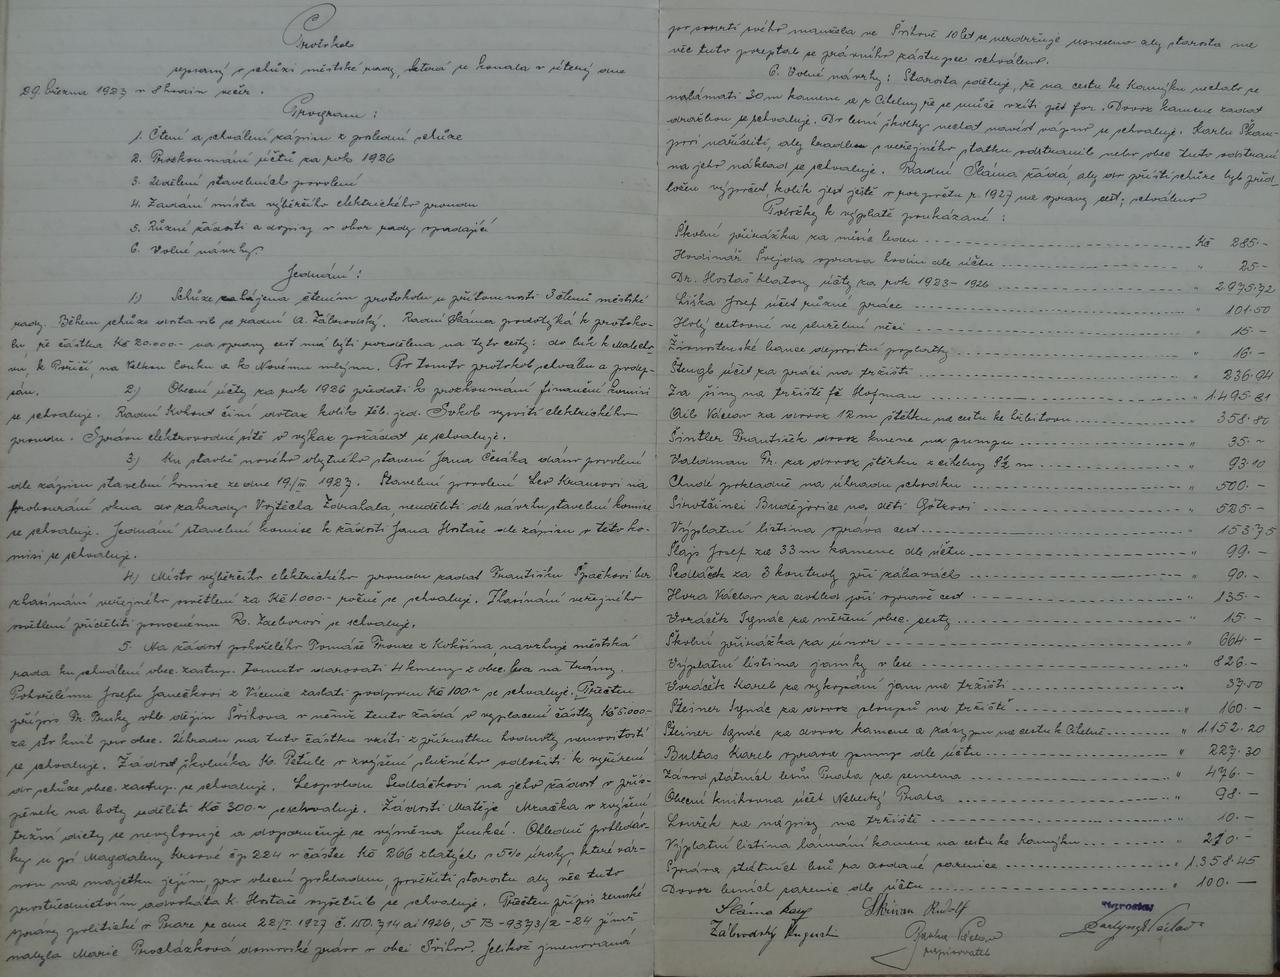 Protokol
sepsaný o schůzi městské rady, která se konala v úterý dne
29. března 1927 v 8 hodin večer.
Program:
1. Čtení a schválení zápisu z poslední schůze
2. Proskoumání účtů za rok 1926
3. Udělení stavebních povolení
4. Zadání místa výběrčího elektrického proudu
5. Různé žádosti a dopisy v obor rady spadající
6. Volné návrhy.
Jednání:
1.) Schůze zahájena čtením protokolu u přítomnosti 3 členů městské
rady. Během schůze dostavil se radní A. Zábrodský. Radní Sláma podotýká k protoko-
lu že částka Kč 20.000.- na spravy cest má býti rozdělena na tyto cesty: do luk k Malech-
vu, k Poříčí, na Velkou louku a k Novému mlýnu. Po tomto protokol schválen a podep-
sán.
2.) Obecní účty za rok 1926 předati k prozkoumání finanční komisi
se schvaluje. Radní Kohout činí dotaz kolik žád. jed. Sokol vysvítí elektrického
proudu. Správu elektrovodné sítě o výkaz požádat se schvaluje.
3.) Ku stavbě nového obytného stavení Jana Česáka dáno povolení
dle zápisu stavební komise ze dne 19/III 1927. Stavební povolení Leo Krausovi na
probourání okna do zahrady Vojtěcha Zdrahala neuděliti dle návrhu stavební komise
se schvaluje. Jednání stavební komise k žádosti Jana Hostaše dle zápisu o této ko-
misi se schvaluje.
4.) Místo výběrčího elektrického proudu zadat Františku Špačkovi bez
zhasínání veřejného osvětlení za Kč 1.000.- ročně se schvaluje. Zhasínání veřejného
osvětlení přiděliti ponocnému R. Zaborovi se schvaluje.
5. Na žádost pohořelého Tomáše Trouze z Kokšína, navrhuje městská
rada ku schválení obec. zastup. tomuto darovati 4 kmeny z obec. lesa na trámy.
Pohořelému Josefu Janečkovi z Vicenic zaslati podporu Kč 100.- se schvaluje. Přečten
přípis Dr. Pruky ohledně dějin Švihova v němž tento žádá o vyplacení částky Kč 5.000.-
za sto knih pro obec. Úhradu na tuto částku vzíti z přírustku hodnoty nemovitostí
se schvaluje. Žádost školníka K. Petule o zvýšení služného odložiti k vyřízení
do schůze obec. zastup. se schvaluje. Leopoldu Sedláčkovi na jeho žádost o přís-
pěvek na boty uděliti Kč 300.- se schvaluje. Žádosti Matěje Mračka o zvýšení
tržní diety se nevyhovuje a doporučuje se výměna funkcí. Ohledně pohledáv-
ky u pí Magdaleny Krsové čp 224 v částce Kč 266 zlatých s 5% úroky, které váz-
nou na majetku jejím, pro obecní pokladnu, pověřiti starostu aby věc tuto
prostřednictvím advokáta K. Hostaše vyšetřil se schvaluje. Přečten přípis zemské
správy politické v Praze ze dne 22/I. 1927 č. 150.714 ai 1926, 5 B-9373/2-24 jímž
nabyla Marie Procházková domovské právo v obci Švihov. Jelikož jmenovaná
po smrti svého manžela ve Švihově 10 let se nezdržuje usneseno aby starosta na
věc tuto poreptal se právního zástupce schváleno.
6. Volné návrhy: Starosta sděluje, že na cestu ke Kamýku nechalo se
nalámati 30 m kamene a z Cihelny, že se může vzíti pět for. Dovoz kamene zadat
dražbou se schvaluje. Do lesní školky nechat navésti vápno se schvaluje. Karlu Škam-
povi naříditi, aby hradbu s veřejného statku odstranil nebo obec tuto odstraní
na jeho náklad se schvaluje. Radní Sláma žádá, aby do příští schůze byl před-
ložen výpočet kolik jest ještě v rozpočtu r. 1927 na spravy cest; schváleno
Položky k výplatě poukázané:
Školní přirážka za měsíc leden Kč 285.-
Hodinář Švejda sprava hodin dle účtu " 25-
Dr. Hostaš Klatovy účty za rok 1923-1926 " 2975.72
Liška Josef účet různé práce " 101.50
Holý cestovné ve služební věci " 15.-
Živnostenské bance depositní poplatky " 16.-
Štengl účet za práci na tržišti " 236.94
Za šíny na tržiště fě Hofman " 1.495.81
Oilb Václav za dovoz 12 m štětku na cestu ke hřbitovu " 358.80
Šintler František dovoz kmene na pumpu " 35.-
Valdman Fr. za dovoz štěrku z cihelny 9½ m " 93.10
Chudé pokladně na úhradu schodku " 500.-
Sirotčinci Budějovice na děti Götzovi " 525.-
Výplatní listina správa cest " 153.75
Šlajs Josef za 33 m kamene dle účtu " 99.-
Sedláček za 3 kontroly při zábavách " 90.-
Hora Václav za dohled při spravě cest " 135.-
Voráček Ignác za měření obec. cesty " 15.-
Školní přirážka za únor " 664.-
Výplatní listina jamky v lese " 826.-
Voráček Karel za vykopání jam na tržišti " 37.50
Steiner Ignác za dovoz sloupů na tržiště " 160.-
Steiner Ignác za dovoz kamene a násypu na cestu k Cihelně " 1.152.20
Bultas Karel sprava pumpy dle účtu " 227.30
Závod státních lesů Praha za semena " 476.-
Obecní knihovna účet Nebeský Praha " 98.-
Louček za nápisy na tržiště " 10.-
Výplatní listina lámání kamene na cestu ke Kamýku " 210.-
Správa státních lesů za dodané sazenice " 1.358.45
Dovoz lesních sazenic dle účtu " 100.-
Sláma Skřivan Rudolf Starosta
Zábrodský Augustin Václav Václav
zapisovatel